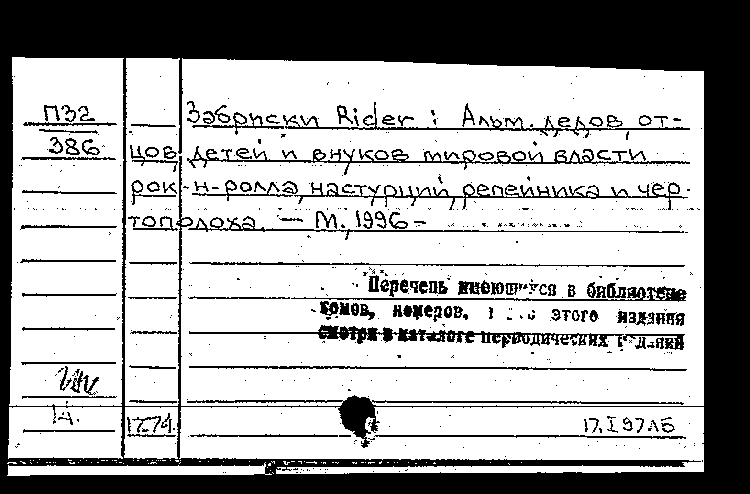 П32 Забриски Rider : Альм. дедов, от-
386 цов, детей и внуков мировой власти
рок-н-ролла, настурций, репейника и чер-
тополоха. — М., 1996 –
Перечень имеющихся в библиотеке
томов, номеров, этого издания
смотри в каталоге периодических изданий
17.I 97 ЛБ